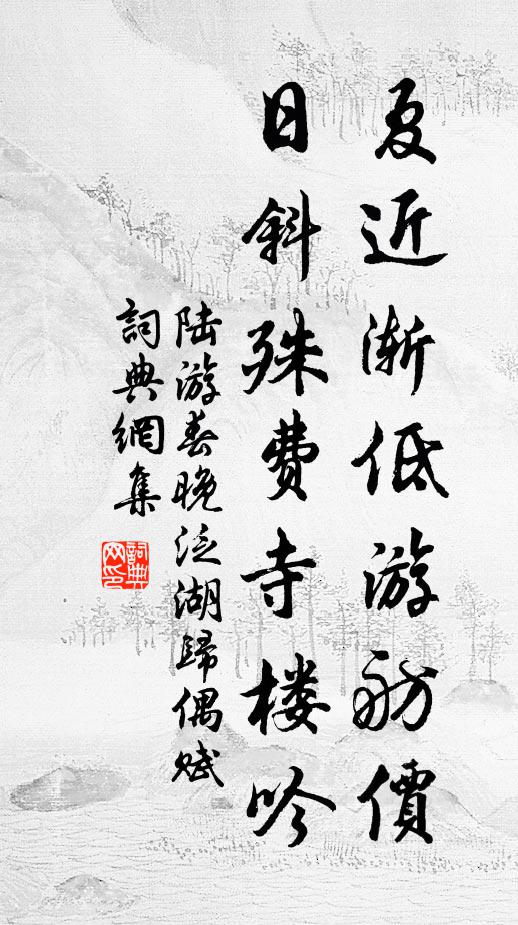 夏近渐低游舫價
日斜殊费寺楼吟
陆游春晚泛湖歸偶赋
詞典網集
詞典網印